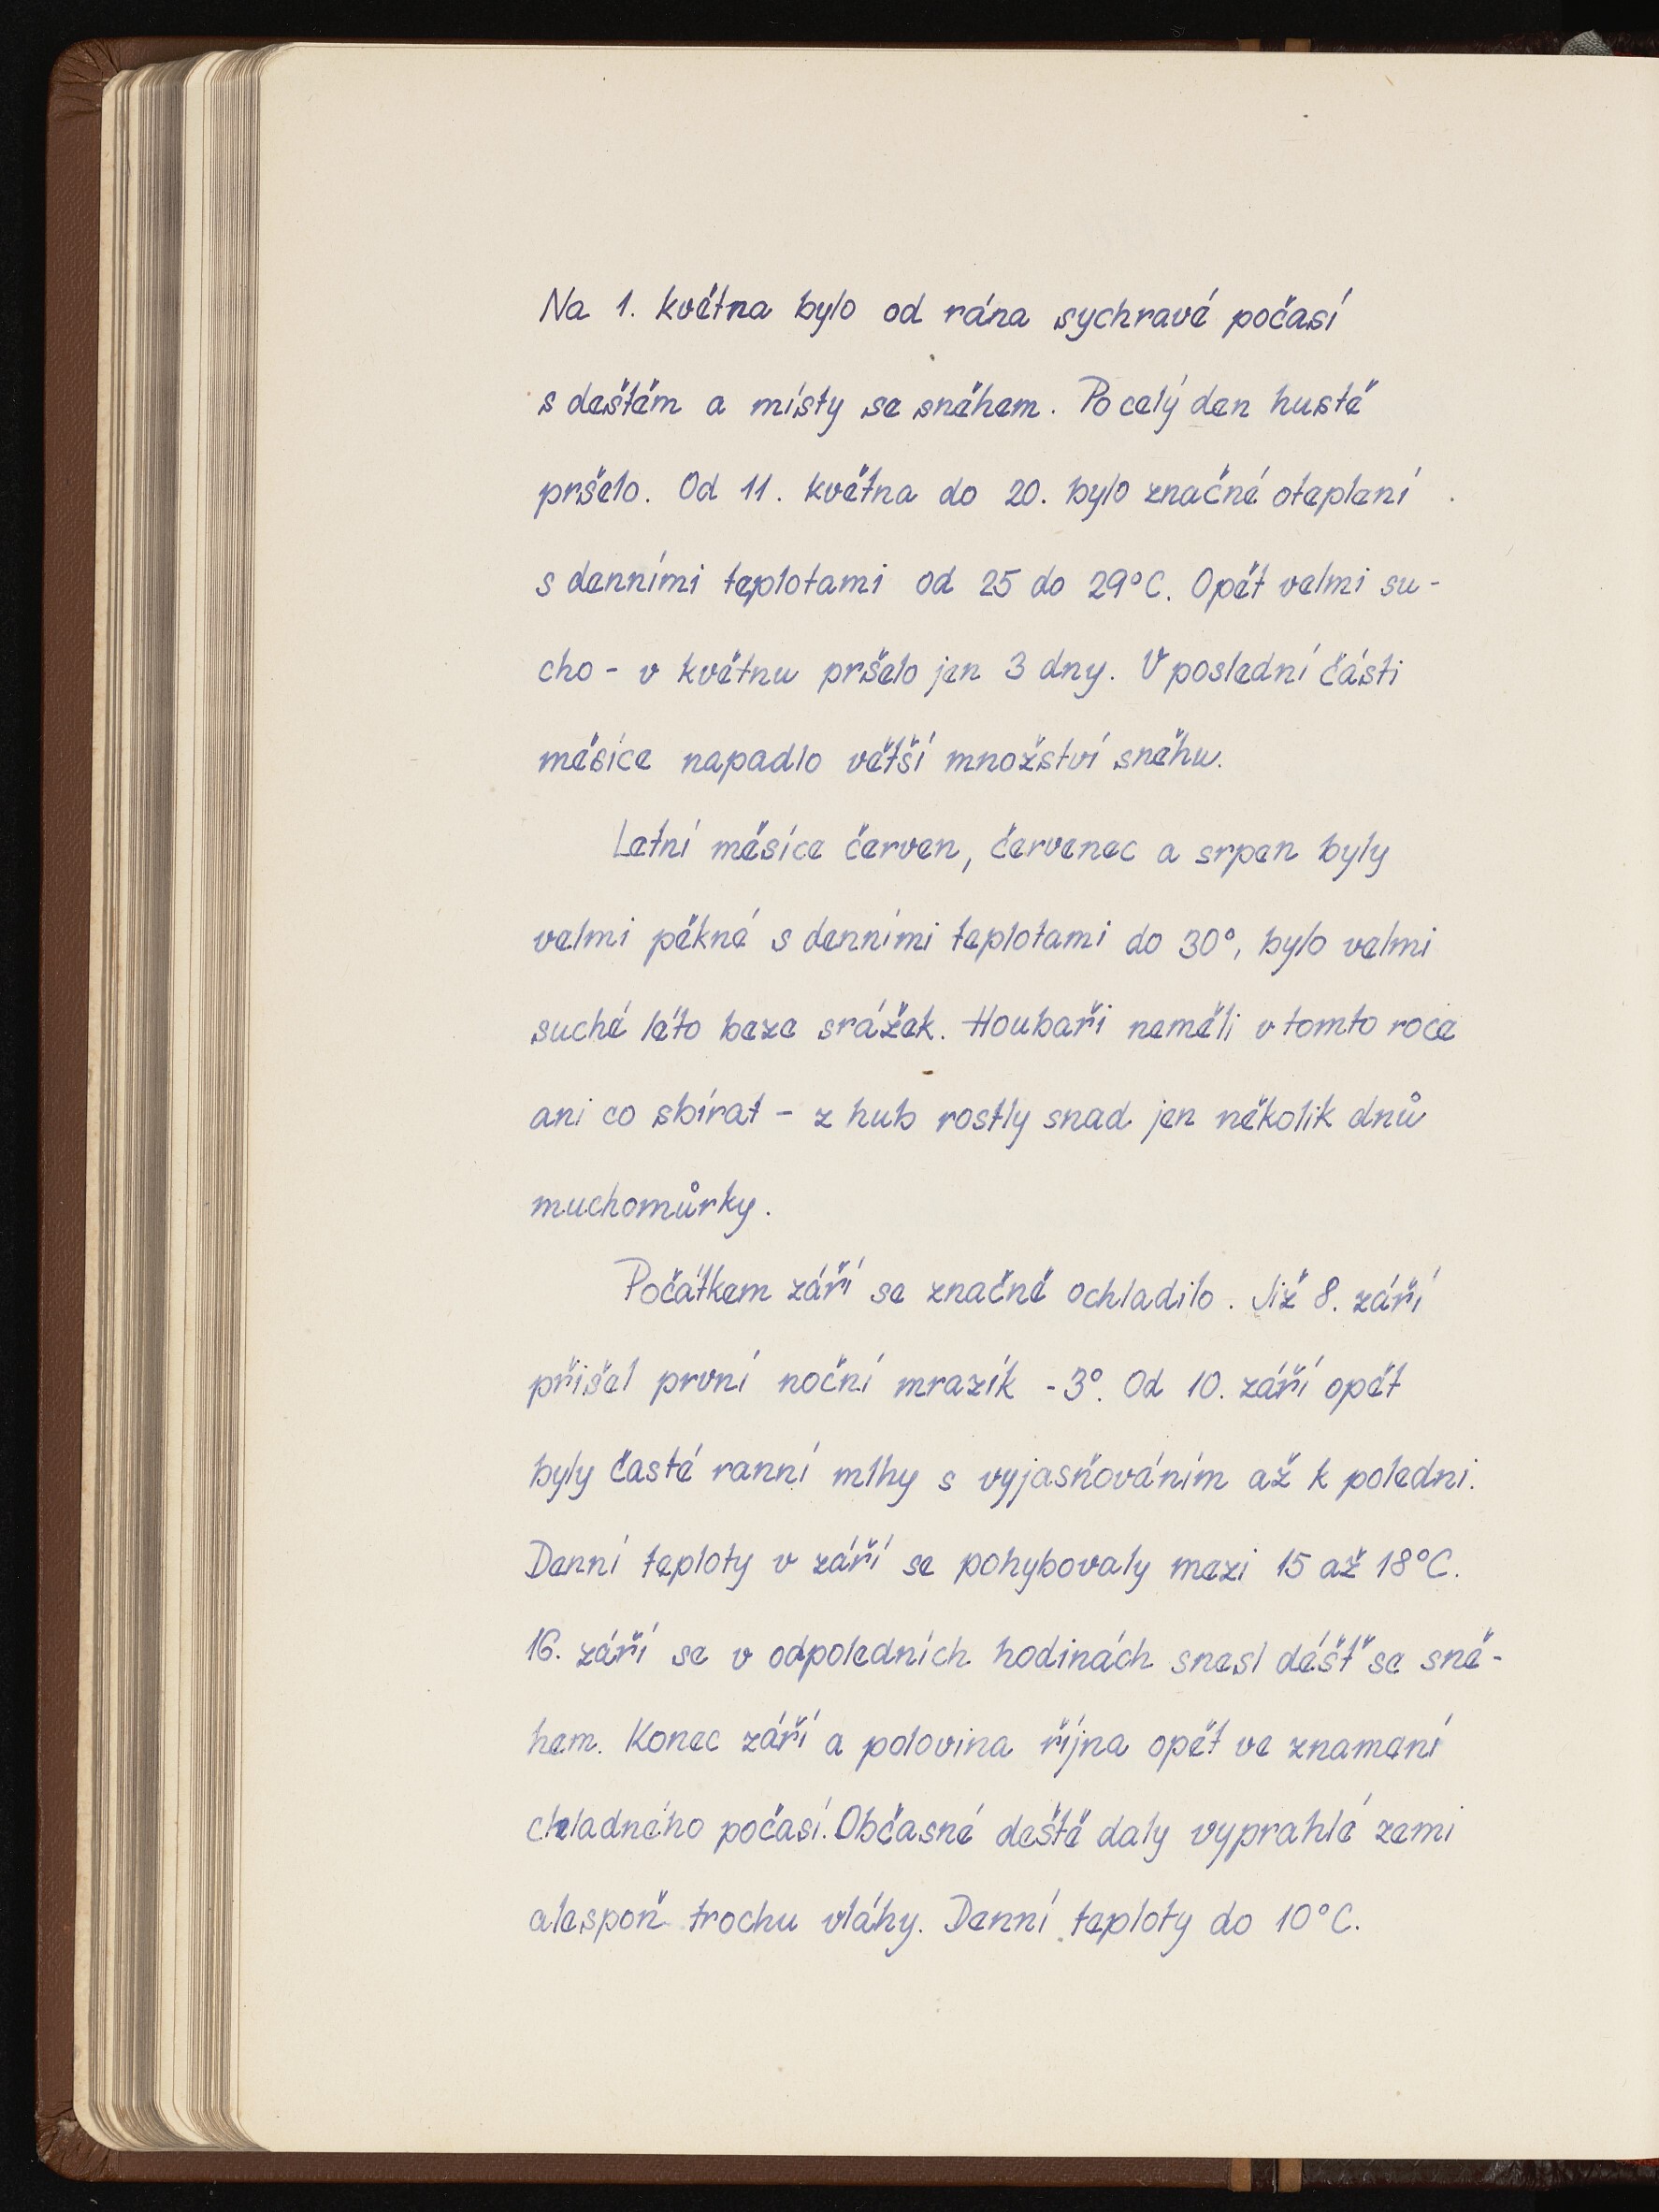 Na 1. května bylo od rána sychravé počasí
s deštěm a místy se sněhem. Po celý den hustě
pršelo. Od 11. května do 20. bylo značné oteplení
s denními teplotami od 25 do 29°C. Opět velmi su-
cho - v květnu pršelo jen 3 dny. V poslední části
měsíce napadlo větší množství sněhu.
Letní měsíce červen, červenec a srpen byly
velmi pěkné s denními teplotami do 30°, bylo velmi
suché léto beze srážek. Houbaři neměli v tomto roce
ani co sbírat - z hub rostly snad jen několik dnů
muchomůrky.
Počátkem září se značně ochladilo. Již 8. září
přišel první noční mrazík -3°. Od 10. září opět
byly časté ranní mlhy s vyjasňováním až k poledni.
Denní teploty v září se pohybovaly mezi 15 až 18°C.
16. září se v odpoledních hodinách snesl déšť se sně-
hem. Konec září a polovina října opět ve znamení
chladného počasí. Občasné deště daly vyprahlé zemi
alespoň trochu vláhy. Denní teploty do 10°C.